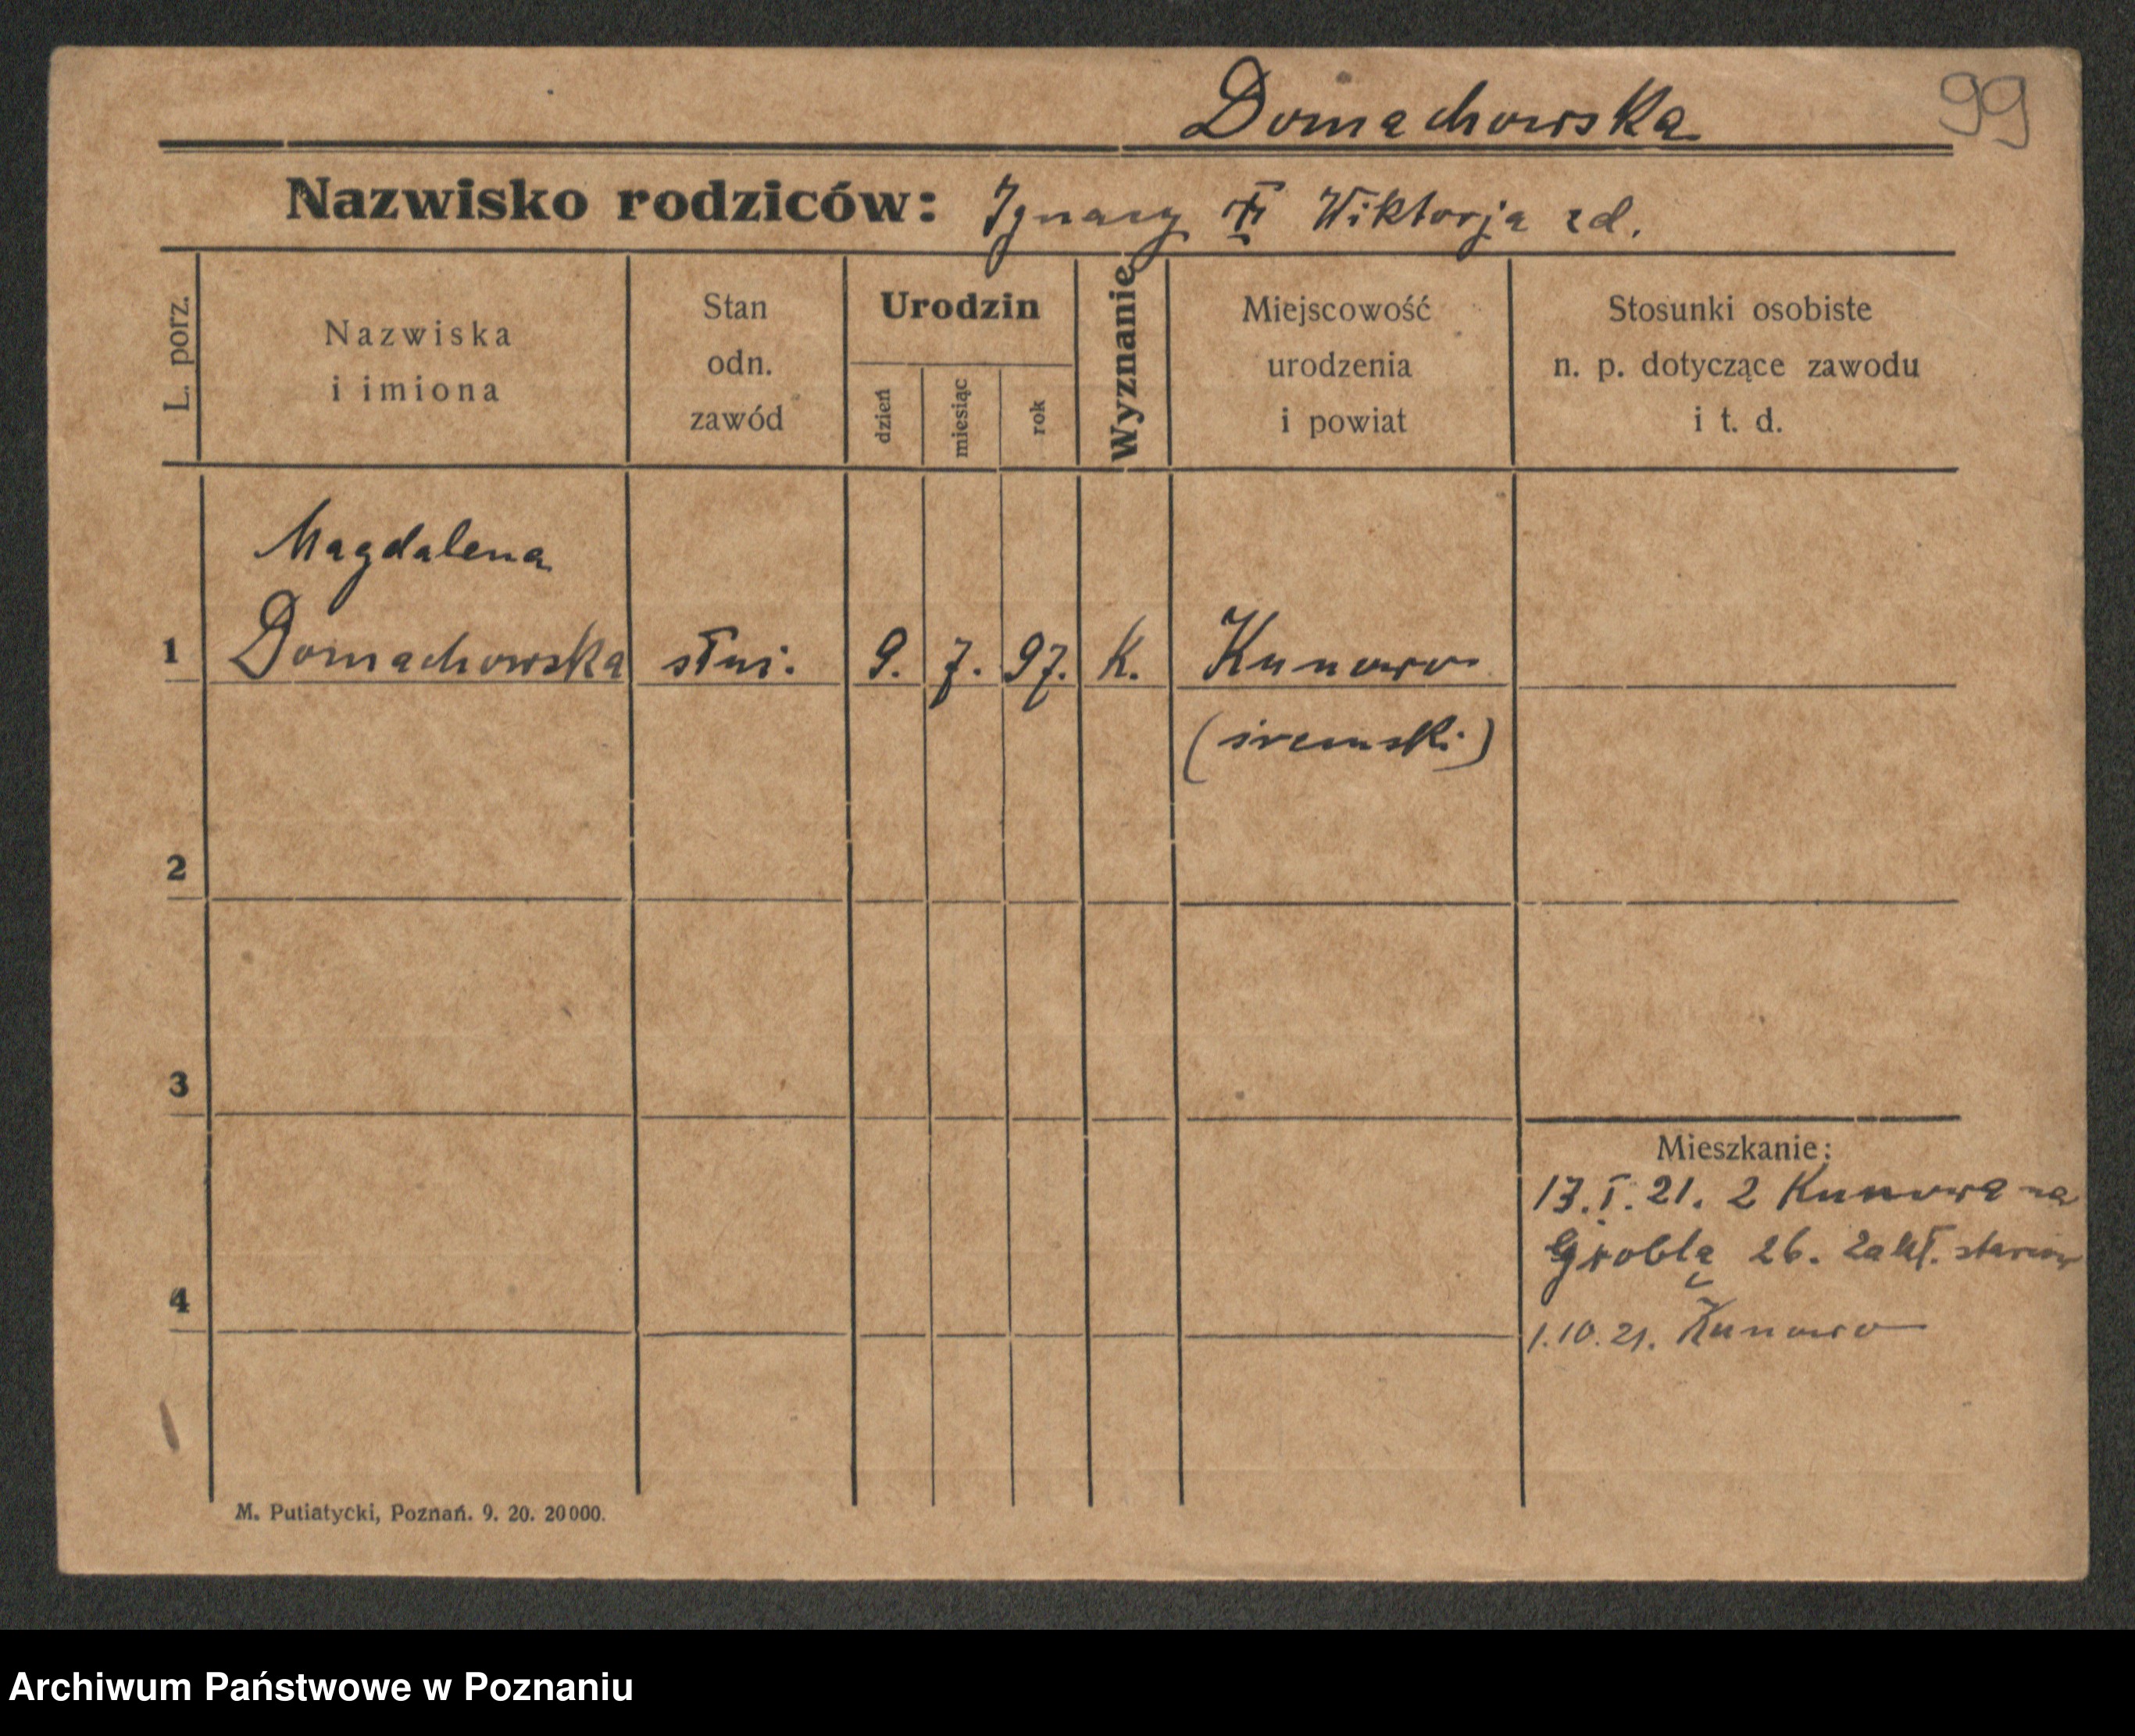 Domachowska 99
Nazwisko rodziców: Ignacy Wiktorja zd.
L. porz.
Nazwiska
i imiona
Stan
odn.
zawód
Urodzin
dzień
miesiąc
rok
Wyznanie
Miejscowość
urodzenia
i powiat
Stosunki osobiste
n. p. dotyczące zawodu
i t. d.
Magdalena
1 Domachowska służ. 9. 7. 97. K. Kunowo
(śremski)
2
3
Mieszkanie:
13. I. 21. z Kunowa na
Groblą 26. Zakł.
4
1.10.21. Kunowo
M. Putiatycki, Poznań. 9. 20. 20000.
Archiwum Państwowe w Poznaniu